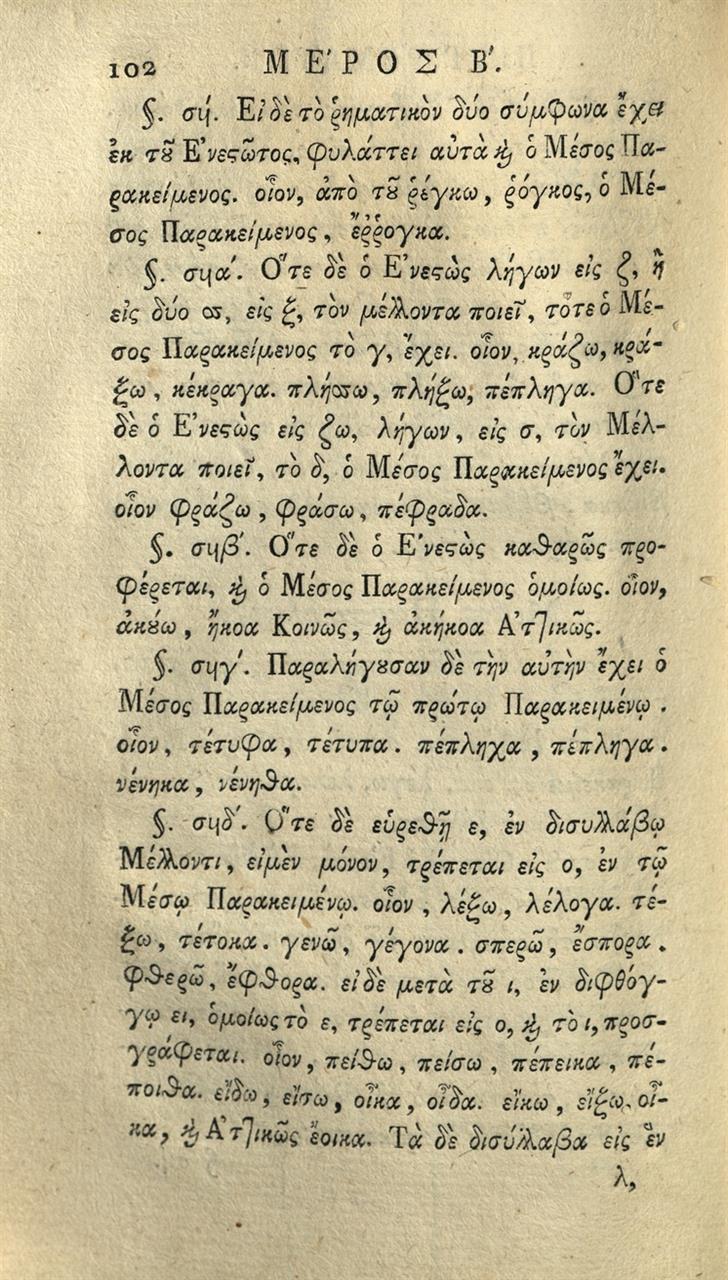 102 ΜΕ'ΡΟΣ Β'.
§. σϟ'. Εἰ δὲ τὸ ῥηματικὸν δύο σύμφωνα ἔχει
ἐκ τοῦ Ἐνεστῶτος, φυλάττει αὐτὰ καὶ ὁ Μέσος Πα-
ρακείμενος. οἷον, ἀπὸ τοῦ ῥέγκω, ῥόγκος, ὁ Μέ-
σος Παρακείμενος, ἔῤῥογκα.
§. σϟα'. Ὅτε δὲ ὁ Ἐνεστὼς λήγων εἰς ζ, ἢ
εἰς δύο σσ, εἰς ξ, τὸν μέλλοντα ποιεῖ, τότε ὁ Μέ-
σος Παρακείμενος τὸ γ, ἔχει. οἷον, κράζω, κρά-
ξω, κέκραγα. πλήσσω, πλήξω, πέπληγα. Ὅτε
δὲ ὁ Ἐνεστὼς εἰς ζω, λήγων, εἰς σ, τὸν Μέλ-
λοντα ποιεῖ, τὸ δ, ὁ Μέσος Παρακείμενος ἔχει.
οἷον φράζω, φράσω, πέφραδα.
§. σϟβ'. Ὅτε δὲ ὁ Ἐνεστὼς καθαρῶς προ-
φέρεται, καὶ ὁ Μέσος Παρακείμενος ὁμοίως. οἷον,
ἀκούω, ἤκοα Κοινῶς, καὶ ἀκήκοα Ἀττικῶς.
§. σϟγ'. Παραλήγουσαν δὲ τὴν αὐτὴν ἔχει ὁ
Μέσος Παρακείμενος τῷ πρώτῳ Παρακειμένῳ.
οἷον, τέτυφα, τέτυπα. πέπληχα, πέπληγα.
νένηκα, νένηθα.
§. σϟδ'. Ὅτε δὲ εὑρεθῇ ε, ἐν δισυλλάβῳ
Μέλλοντι, εἰμὲν μόνον, τρέπεται εἰς ο, ἐν τῷ
Μέσῳ Παρακειμένῳ. οἷον, λέξω, λέλογα. τέ-
ξω, τέτοκα. γενῶ, γέγονα. σπερῶ, ἔσπορα.
φθερῶ, ἔφθορα. εἰ δὲ μετὰ τοῦ ι, ἐν διφθόγ-
γῳ ει, ὁμοίως τὸ ε, τρέπεται εἰς ο, καὶ τὸ ι, προσ-
γράφεται. οἷον, πείθω, πείσω, πέπεικα, πέ-
ποιθα. εἴδω, εἴσω, οἶκα, οἶδα. εἴκω, εἴξω, οἶ-
κα, καὶ Ἀττικῶς ἔοικα. Τὰ δὲ δισύλλαβα εἰς ἓν
λ,